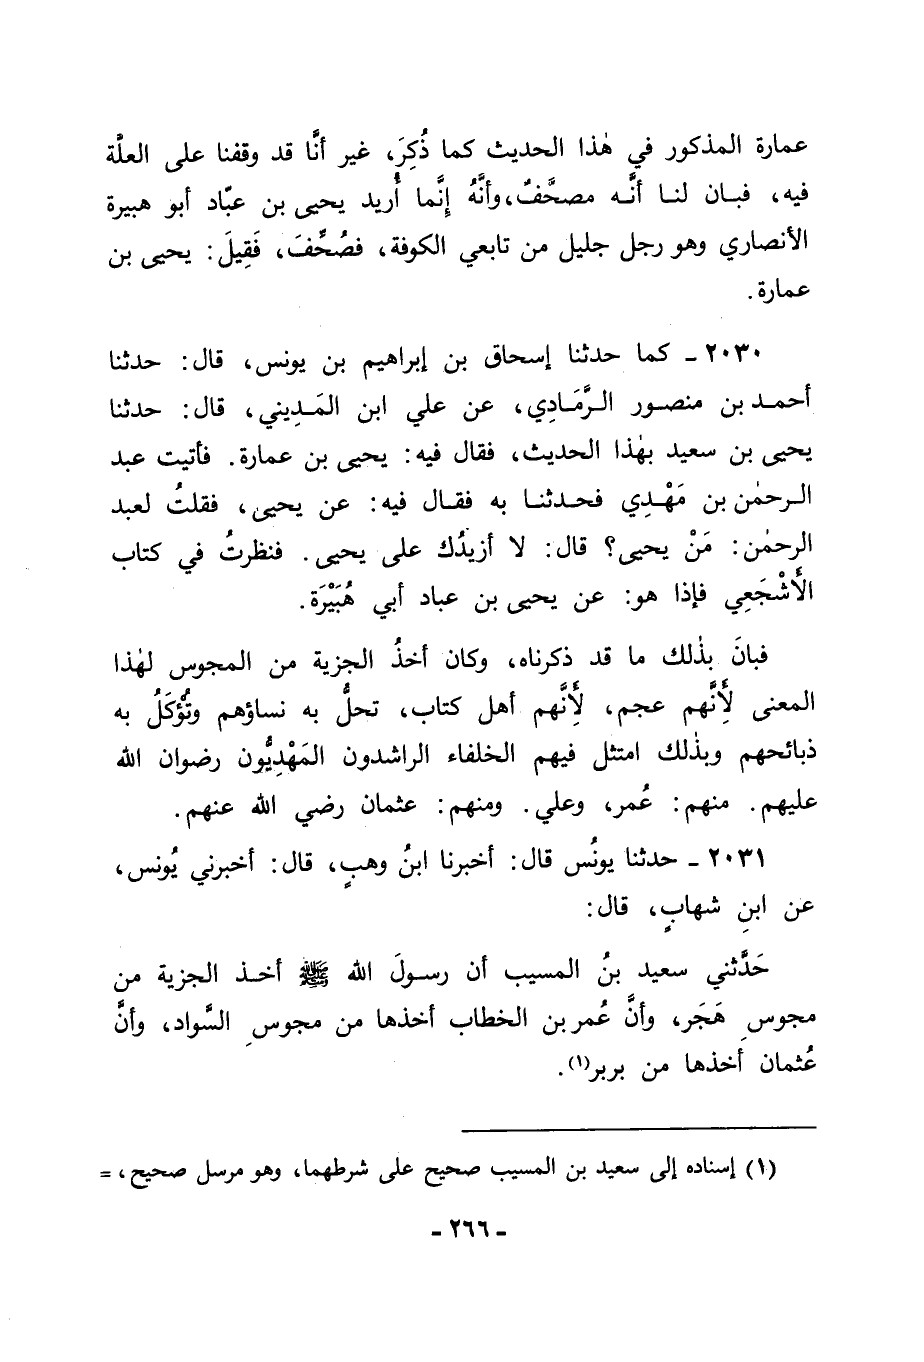 عمارة المذكور في هٰذا الحديث كما ذُكِرَ، غير أنَّا قد وقفنا على العلَّة
فيه، فبان لنا أنَّه مصحَّفٌ، وأنَّهُ إِنَّما أُريد يحيى بن عبّاد أبو هبيرة
الأنصاري وهو رجل جليل من تابعي الكوفة، فصُحِّفَ، فَقِيلَ: يحيى بن
عمارة.
٢٠٣٠ - كما حدثنا إسحاق بن إبراهيم بن يونس، قال: حدثنا
أحمد بن منصور الرَّمَادِي، عن علي ابن المَديني، قال: حدثنا
يحيى بن سعيد بهٰذا الحديث، فقال فيه: يحيى بن عمارة. فأتيت عبد
الرحمٰن بن مَهْدِي فحدثنا به فقال فيه: عن يحيى، فقلتُ لعبد
الرحمٰن: مَنْ يحيى؟ قال: لا أزيدُك على يحيى. فنظرتُ في كتاب
الأَشْجَعِي فإذا هو: عن يحيى بن عباد أبي هُبَيْرَة.
فبانَ بذٰلك ما قد ذكرناه، وكان أخذُ الجزية من المجوس لهٰذا
المعنى لأَنَّهم عجم، لأَنَّهم أهل كتاب، تحلُّ به نساؤهم وتُؤْكَلُ به
ذبائحهم وبذٰلك امتثل فيهم الخلفاء الراشدون المَهْدِيُّون رضوان الله
عليهم. منهم: عُمر، وعلي. ومنهم: عثمان رضي الله عنهم.
٢٠٣١ - حدثنا يونُس قال: أخبرنا ابنُ وهبٍ، قال: أخبرني يُونس،
عن ابنِ شهابٍ، قال:
حَدَّثني سعيد بنُ المسيب أن رسولَ الله ﷺ أخذ الجزية من
مجوسِ هَجَر، وأنَّ عُمر بن الخطاب أخذها من مجوسِ السَّواد، وأنَّ
عُثمان أخذها من بربر(١).
(١) إسناده إلى سعيد بن المسيب صحيح على شرطهما، وهو مرسل صحيح، =
- ٢٦٦ -